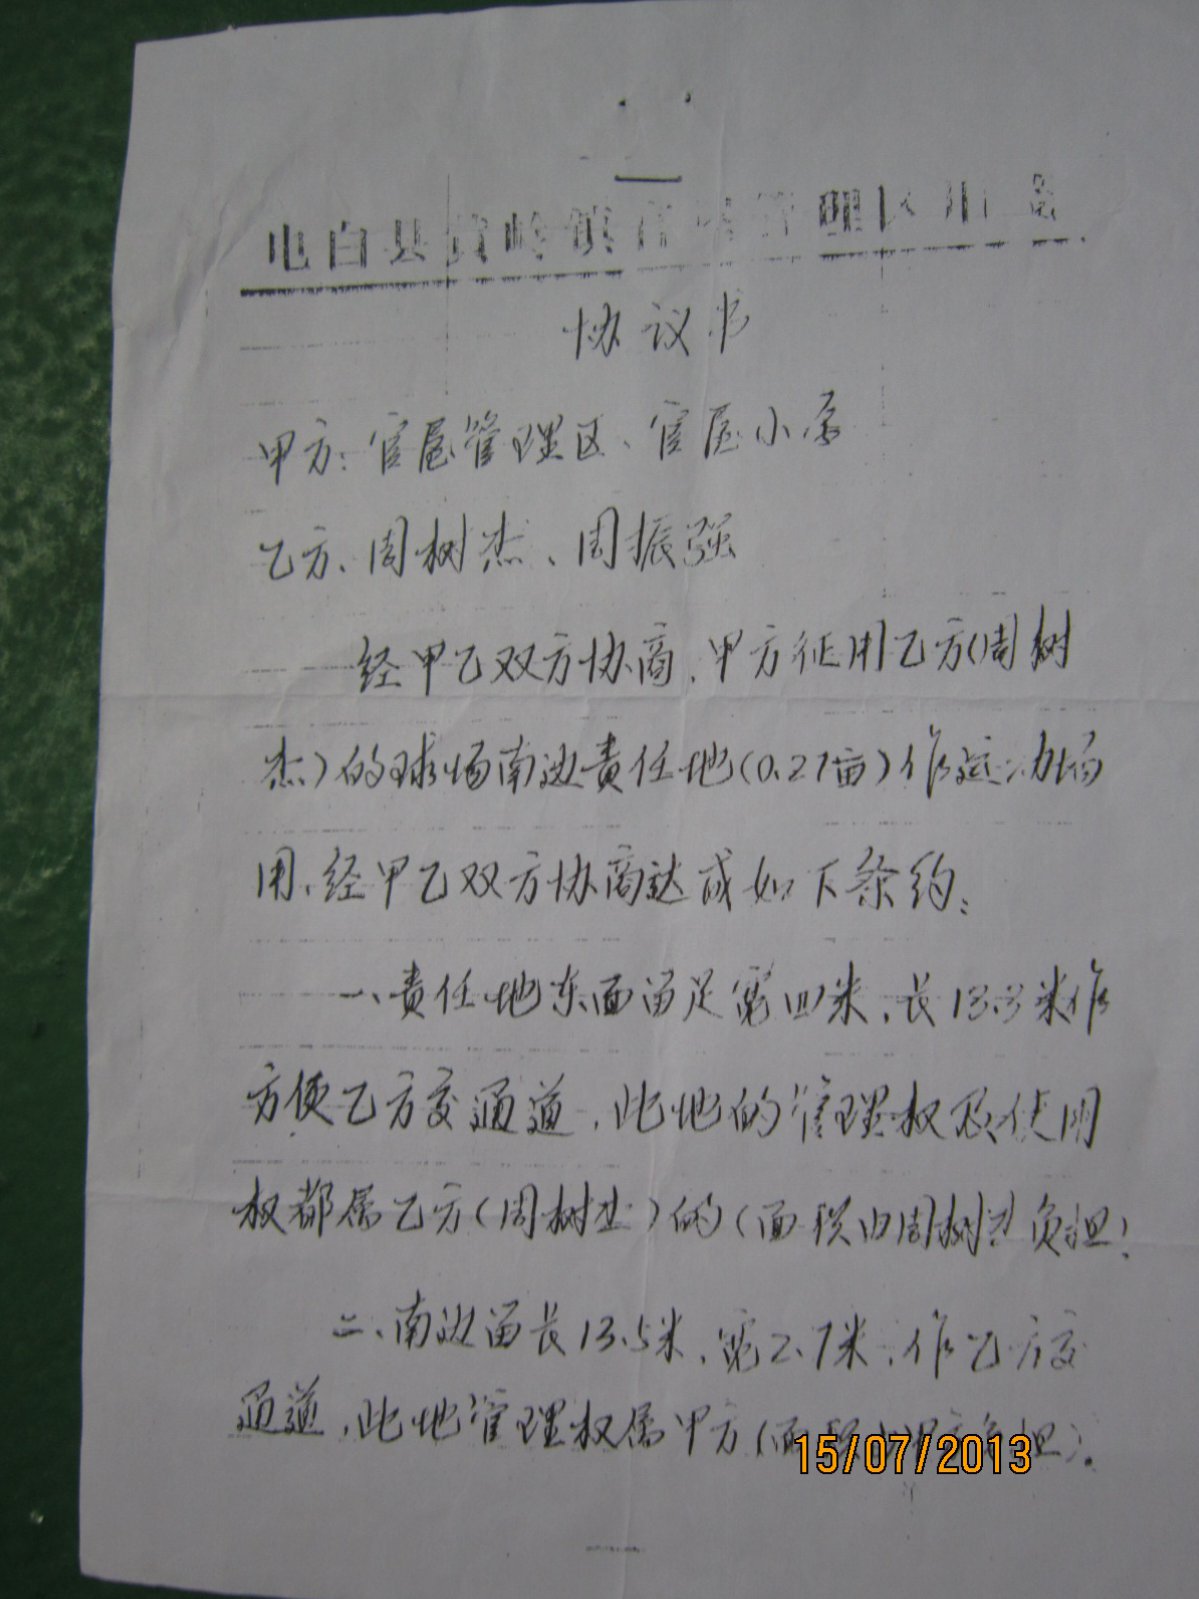 电白县黄岭镇管理区用笺
协议书
甲方：官屋管理区、官屋小学
乙方、周树杰、周振强
经甲乙双方协商，甲方征用乙方（周树
杰）的球场南边责任地（0.27亩）作运动场
用，经甲乙双方协商达成如下条约：
一、责任地东面留足宽四米，长13.3米作
方便乙方交通道，此地的管理权及使用
权都属乙方（周树杰）的（面积由周树杰负担）
二、南边留长13.5米，宽2.7米，作乙方交
通道，此地管理权属甲方（面积由甲方负担）。
15/07/2013